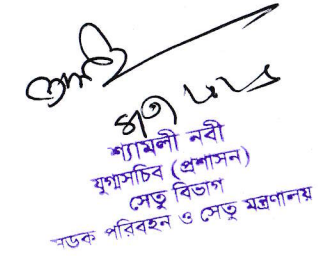 শ্যামলী নবী
যুগ্মসচিব (প্রশাসন)
সেতু বিভাগ
সড়ক পরিবহন ও সেতু মন্ত্রণালয়